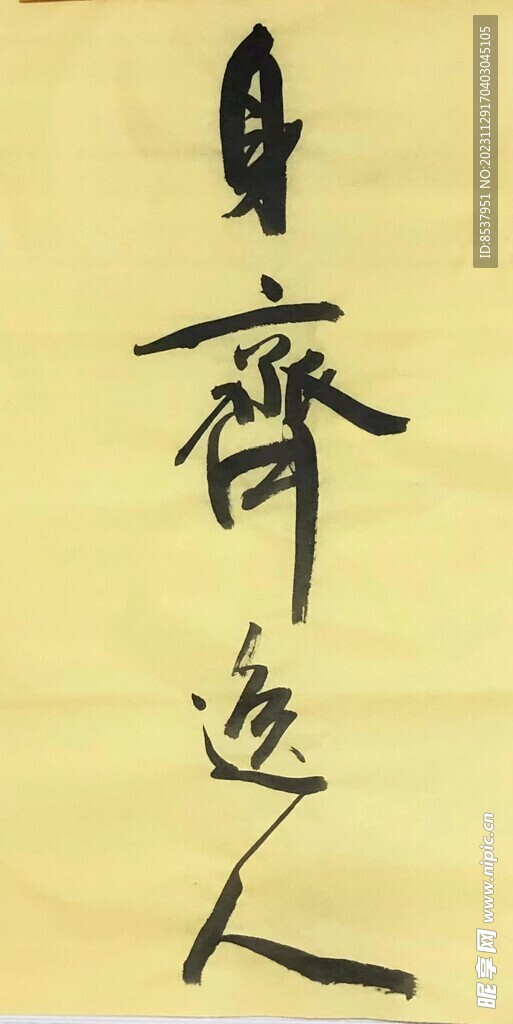 身齊逸人
ID:8537951 NO:20231129170403045105
昵享网 www.nipic.cn